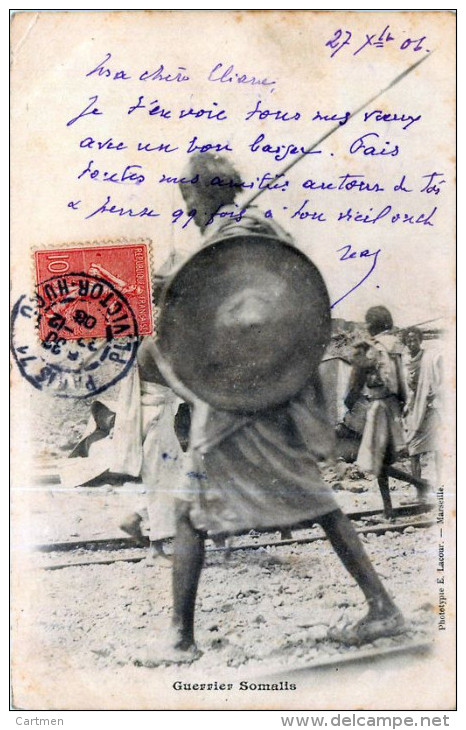 27 Xbre 06.
Ma chère Eliane,
Je t'envoie tous mes vœux
avec un bon baiser. Fais
toutes mes amitiés autour de toi
& pense qq fois à ton vieil oncle
10
REPUBLIQUE FRANÇAISE
PARIS 71
PL. VICTOR-HUGO
Phototypie E. Lacour. — Marseille.
Guerrier Somalis
Cartmen
http://www.delcampe.net